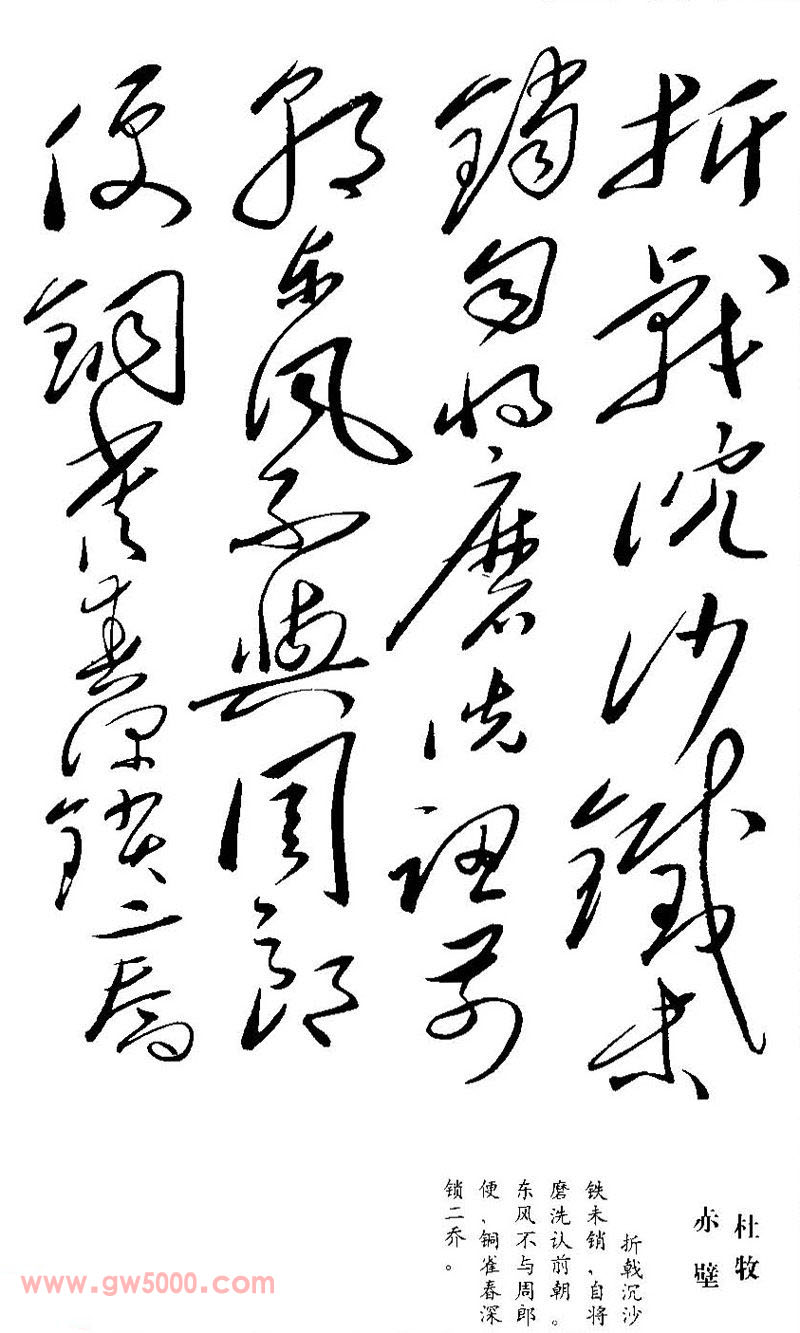 折戟沉沙鐵未
銷自將磨洗認前
朝東風不與周郎
便銅雀春深鎖二喬
杜牧
赤壁
折戟沉沙
铁未销，自将
磨洗认前朝。
东风不与周郎
便，铜雀春深
锁二乔。
www.gw5000.com